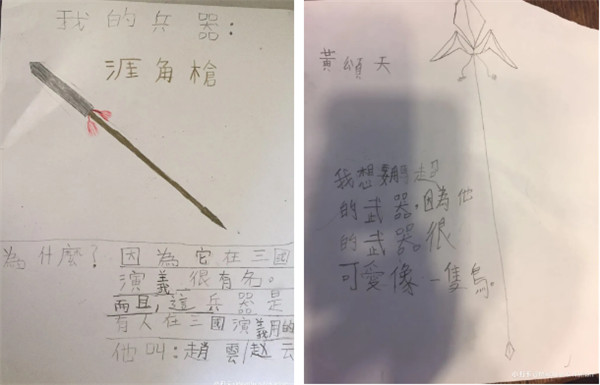 我的兵器：
涯角槍
為什麼？因為它在三國
演義很有名。
而且，這兵器是
有人在三國演義用的
他叫：趙雲/赵云
黃頌天
我想要馬超
的武器，因為他
的武器很
可愛像一隻鳥。